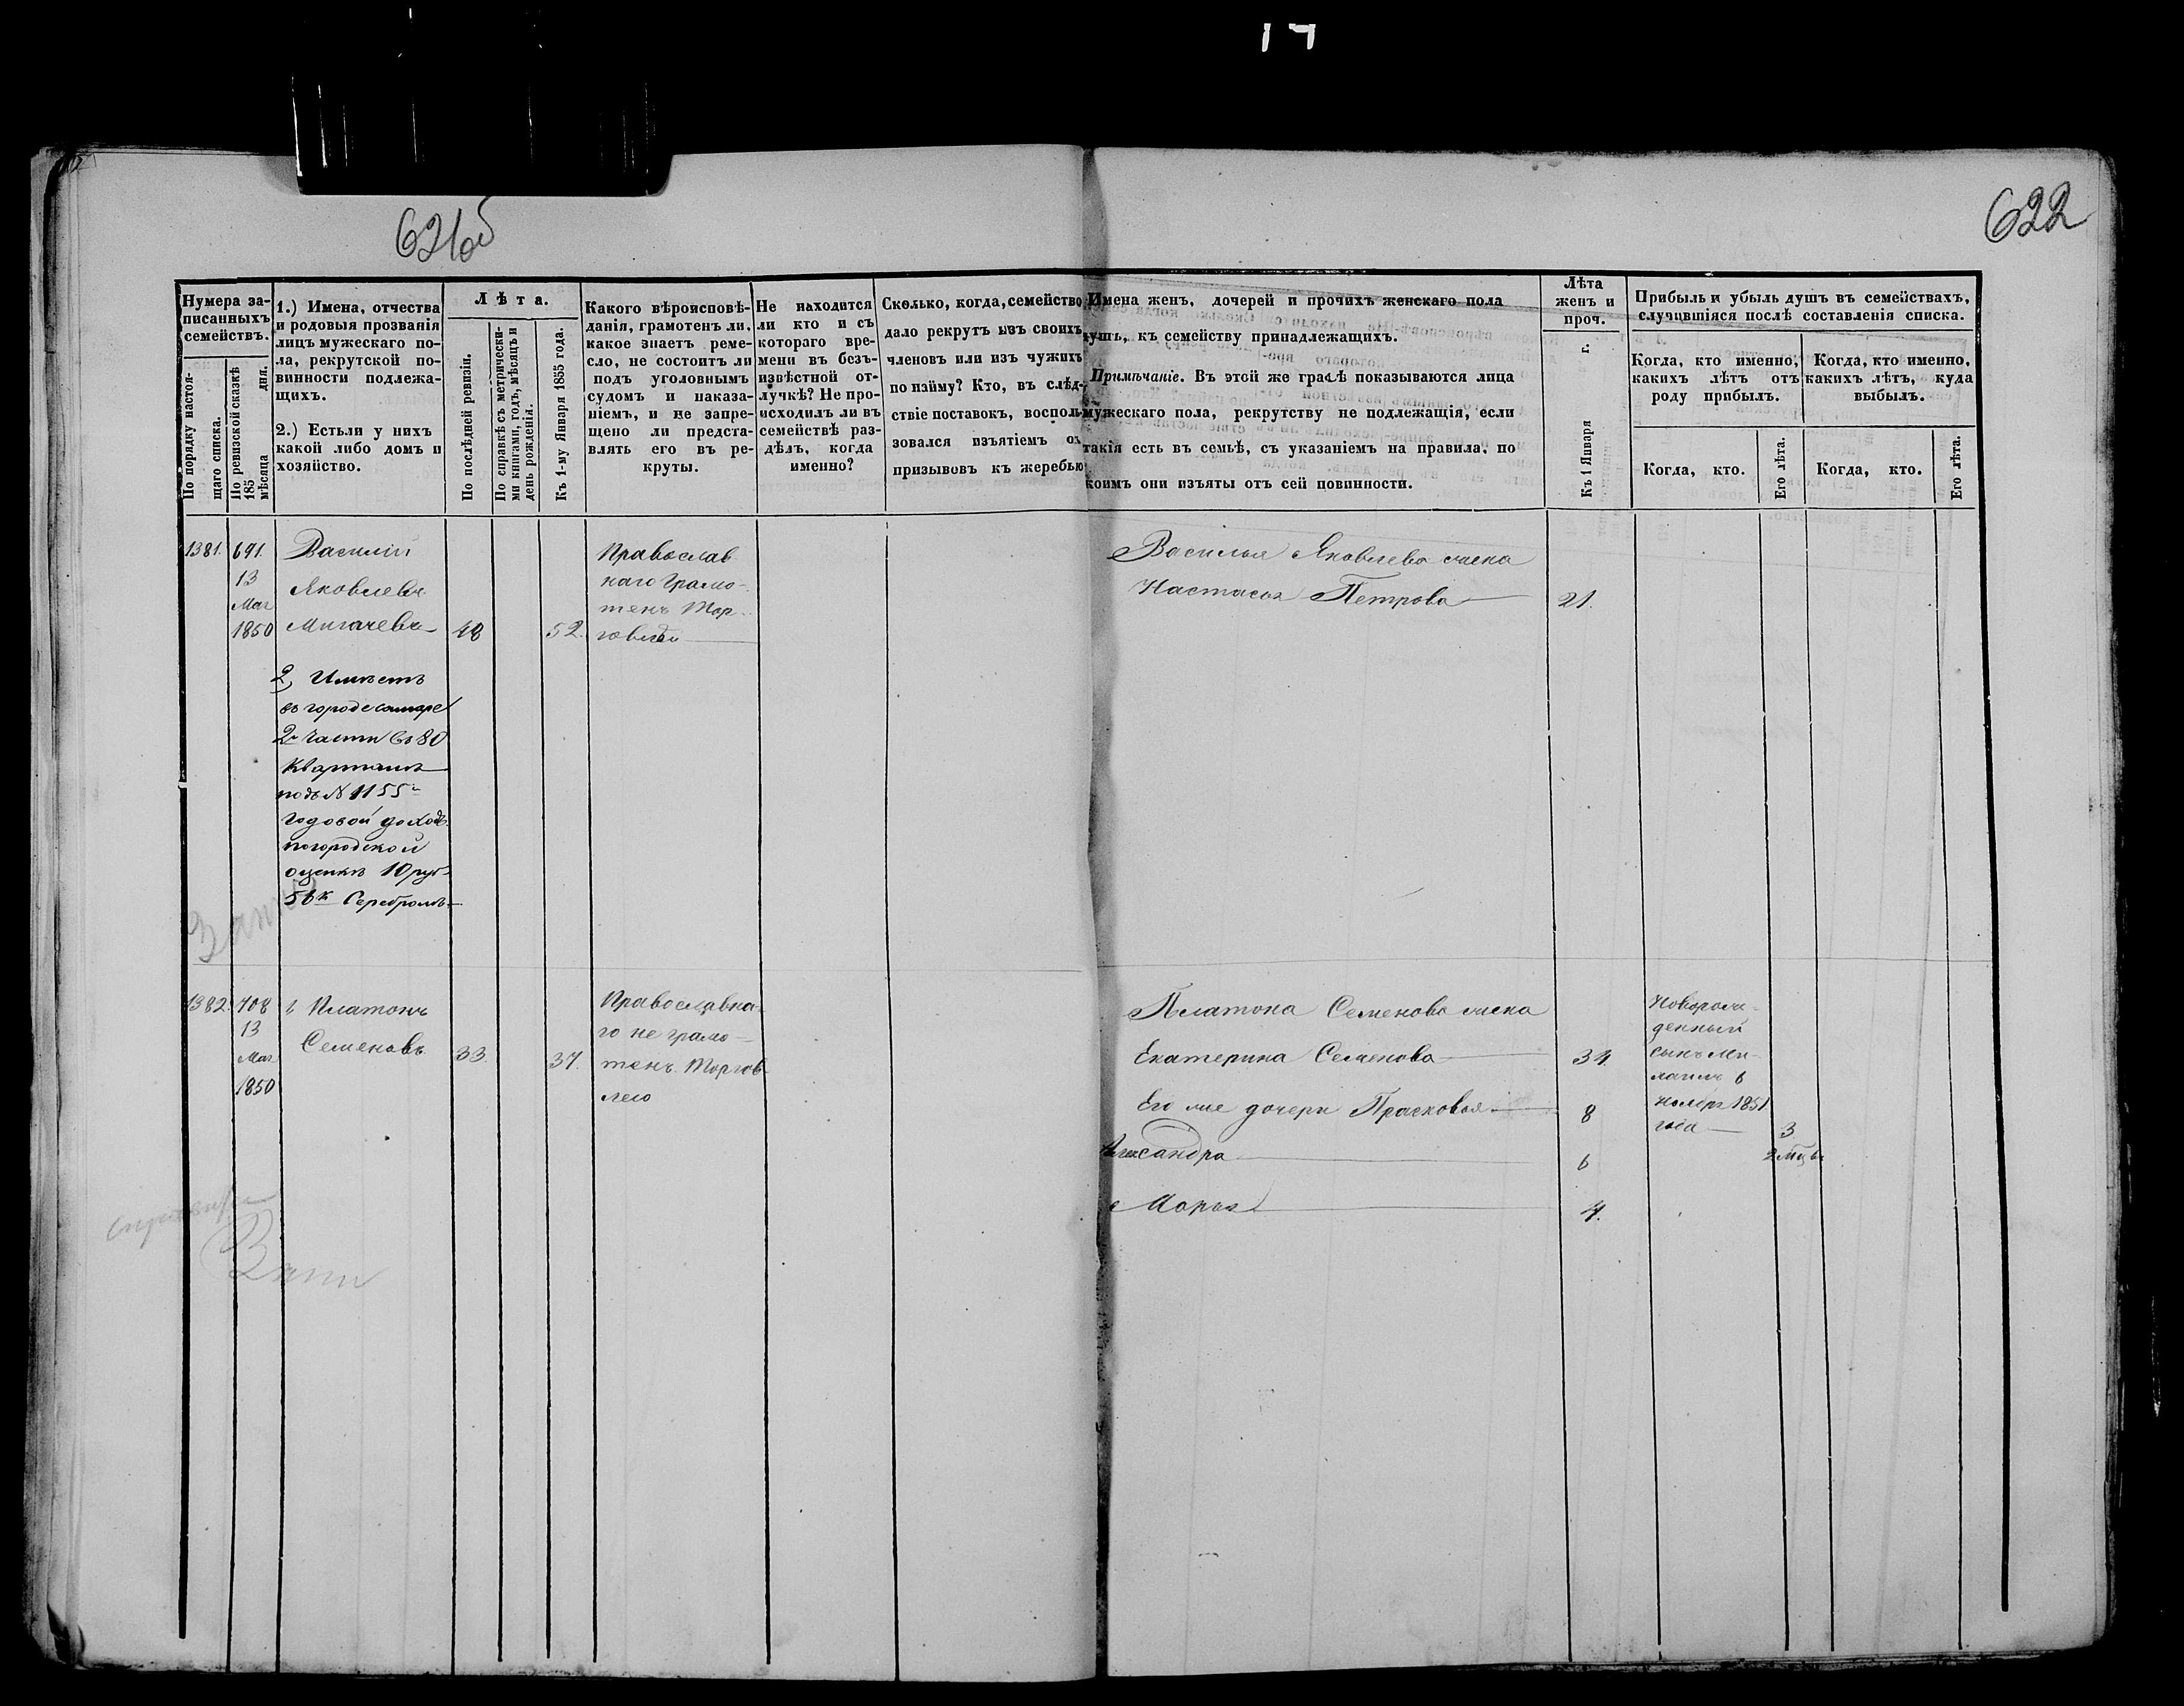 17
621об
622
Нумера за-
писанныхъ
семействъ.
По порядку настоя-
щаго списка.
По ревизской сказкѣ
185 дня.
мѣсяца
1.) Имена, отчества
и родовыя прозванія
лицъ мужескаго по-
ла, рекрутской по-
винности подлежа-
щихъ.
2.) Естьли у нихъ
какой либо домъ и
хозяйство.
Лѣта.
По послѣдней ревизіи.
По справкѣ съ метрически-
ми книгами, годъ, мѣсяцъ и
день рожденія.
Къ 1-му Января 1855 года.
Какого вѣроисповѣ-
данія, грамотенъ ли,
какое знаетъ реме-
сло, не состоитъ ли
подъ уголовнымъ
судомъ и наказа-
ніемъ, и не запре-
щено ли предста-
влять его въ ре-
круты.
Не находится
ли кто и съ
котораго вре-
мени въ безъ-
извѣстной от-
лучкѣ? Не про-
исходилъ ли въ
семействѣ раз-
дѣлъ, когда
именно?
Сколько, когда, семейство
дало рекрутъ изъ своихъ
членовъ или изъ чужихъ
по найму? Кто, въ слѣд-
ствіе поставокъ, восполь-
зовался изъятіемъ от
призывовъ къ жеребью
Имена женъ, дочерей и прочихъ женскаго пола
душъ, къ семейству принадлежащихъ.
Примѣчаніе. Въ этой же графѣ показываются лица
мужескаго пола, рекрутству не подлежащія, если
такія есть въ семьѣ, съ указаніемъ на правила, по
коимъ они изъяты отъ сей повинности.
Лѣта
женъ и
проч.
Къ 1 Января г.
Прибыль и убыль душъ въ семействахъ,
случившіяся послѣ составленія списка.
Когда, кто именно,
какихъ лѣтъ отъ
роду прибылъ.
Когда, кто именно,
какихъ лѣтъ, куда
выбылъ.
Когда, кто.
Его лѣта.
Когда, кто.
Его лѣта.
1381.
691.
13
Мая
1850
Василій
Яковлевъ
Мигачевъ
48
52.
Православ
наго Грамо-
тенъ Тор-
Василья Яковлева жена
Настасья Петрова
21.
2, Имѣетъ
въ городе самаре
2й части въ 80
Кварталѣ
подъ № 1155м
годовой доходъ
погородской
оценкѣ 10 руб
к Серебромъ
1382.
708
13
Мая
1850
1 Платонъ
Семеновъ
33.
37.
Православна-
го не грамо-
тенъ. Торгов-
лею
Платона Семенова жена
Екатерина Семенова
34.
Его же дочери Прасковья
8
Александра
6
Марья
4.
Новорож-
денный
сынъ Ми-
хаилъ 6
Ноября 1851
года
3
2 мѣц.